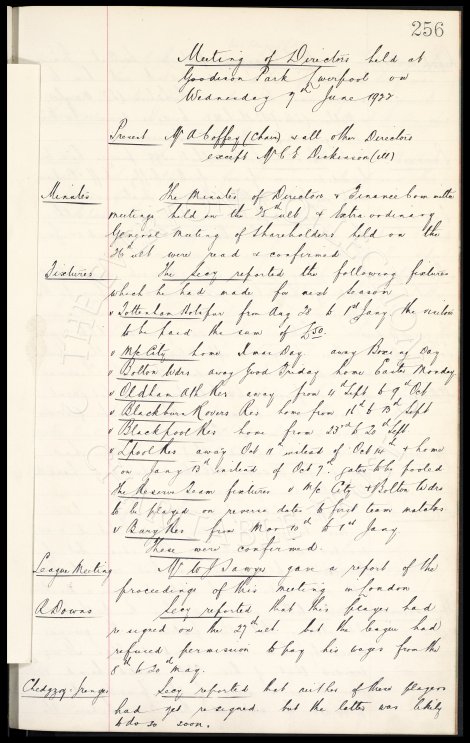 256
Meeting of Directors held at
Goodison Park Liverpool on
Wednesday 7th June 1922
Present Mr A Coffey (Chair) & all other Directors
except Mr C E Dickinson (ill)
Minutes The Minutes of Directors & Finance Committee
meetings held on the ulto & Extraordinary
General meeting of Shareholders held on the
26th ulto were read & confirmed
Fixtures The Secy reported the following fixtures
which he had made for next season
v Tottenham Hotspur from Aug 28 to 1st Jany, the visitors
to be paid the sum of £50.
v M/c City home Xmas Day away Boxing Day
v Bolton Wdrs away Good Friday home Easter Monday
v Oldham Ath Res away from 4th Sept to 9th Oct
v Blackburn Rovers Res home from 16th to 13th Sept
v Blackpool Res home from 23rd to 20th Sept
v L'pool Res away Oct 11th instead of Oct 14th & home
on Jany 13th instead of Oct 7th, gates to be pooled
The Reserve Team fixtures v M/c City & Bolton Wdrs
to be played on reverse dates to first team matches
v Bury Res from Mar 10th to 1st Jany
These were confirmed.
League Meeting Mr W J Sawyer gave a report of the
proceedings of this meeting in London
R Downs Secy reported that this player had
resigned on the 27th ult. but the league had
refused permission to pay his wages from the
8th to 20th May.
Chedgzoy - Irvine Secy reported that neither of these players
had yet re-signed but the latter was likely
to do so soon.